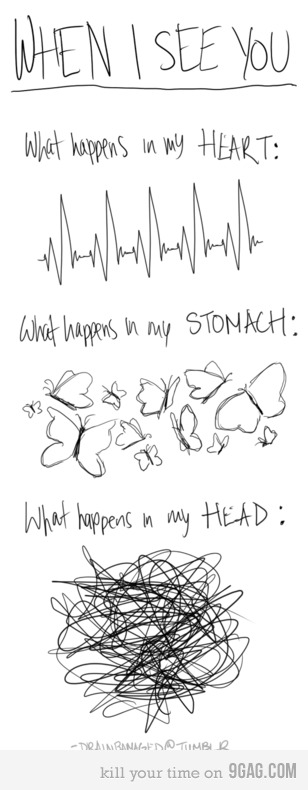 WHEN I SEE YOU
What happens in my HEART:
What happens in my STOMACH:
What happens in my HEAD:
-DRAINBAMAGED@TUMBLR
kill your time on 9GAG.COM